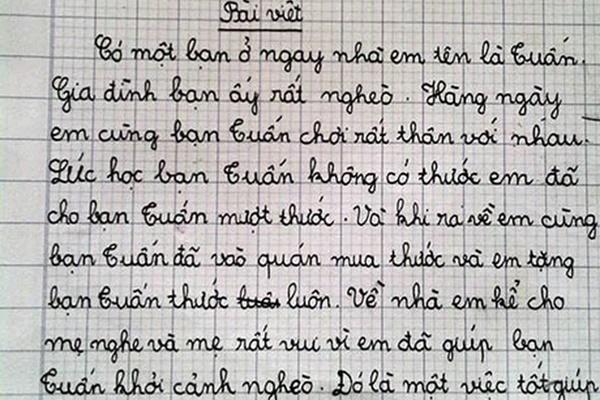 Bài viết
Có một bạn ở ngay nhà em tên là Tuấn.
Gia đình bạn ấy rất nghèo. Hằng ngày
em cùng bạn Tuấn chơi rất thân với nhau.
Lúc học bạn Tuấn không có thước em đã
cho bạn Tuấn mượt thước. Và khi ra về em cùng
bạn Tuấn đã vào quán mua thước và em tặng
bạn Tuấn thước luôn. Về nhà em kể cho
mẹ nghe và mẹ rất vui vì em đã giúp bạn
Tuấn khỏi cảnh nghèo. Đó là một việc tốt giúp